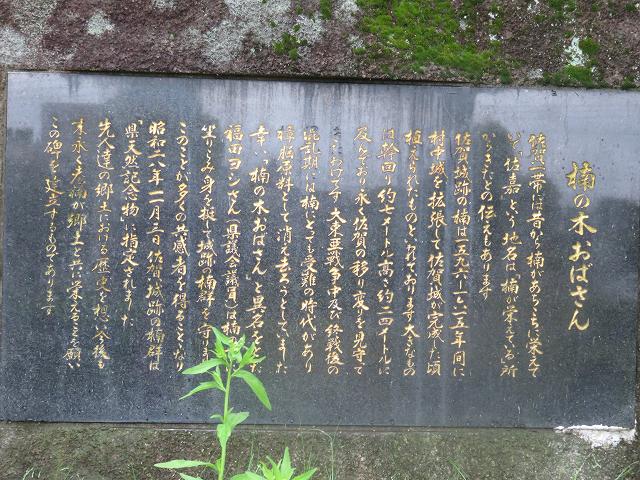 楠の木おばさん
佐賀一帯には昔から楠があちこちに栄えて
いて「佐嘉」という地名は「楠が栄えている」所
からきたとの伝えもあります
佐賀城跡の楠は一五九六〜一六一五年間に
村中城を拡張して佐賀城が完成した頃
植えられたものといわれております 大きなもの
は幹回り約七メートル高さ約二四メートルに
及んでおり永く佐賀の移り変りを見守って
きたわけです 大東亜戦争中及び終戦後の
混乱期には楠にとっても受難の時代があり
樟脳原料として消え去ろうとしていました
幸い「楠の木おばさん」と異名を
福田ヨシさん(県議会議員)は楠
坐りこみ身を挺して城跡の楠群を守ります
このことが多くの共感者を得ることになり
昭和二八年二月三日佐賀城跡の楠群は
「県天然記念物」に指定されました
先人達の郷土における歴史を想い今後も
末永く老楠が郷土と共に栄えることを願い
この碑を建立するものであります